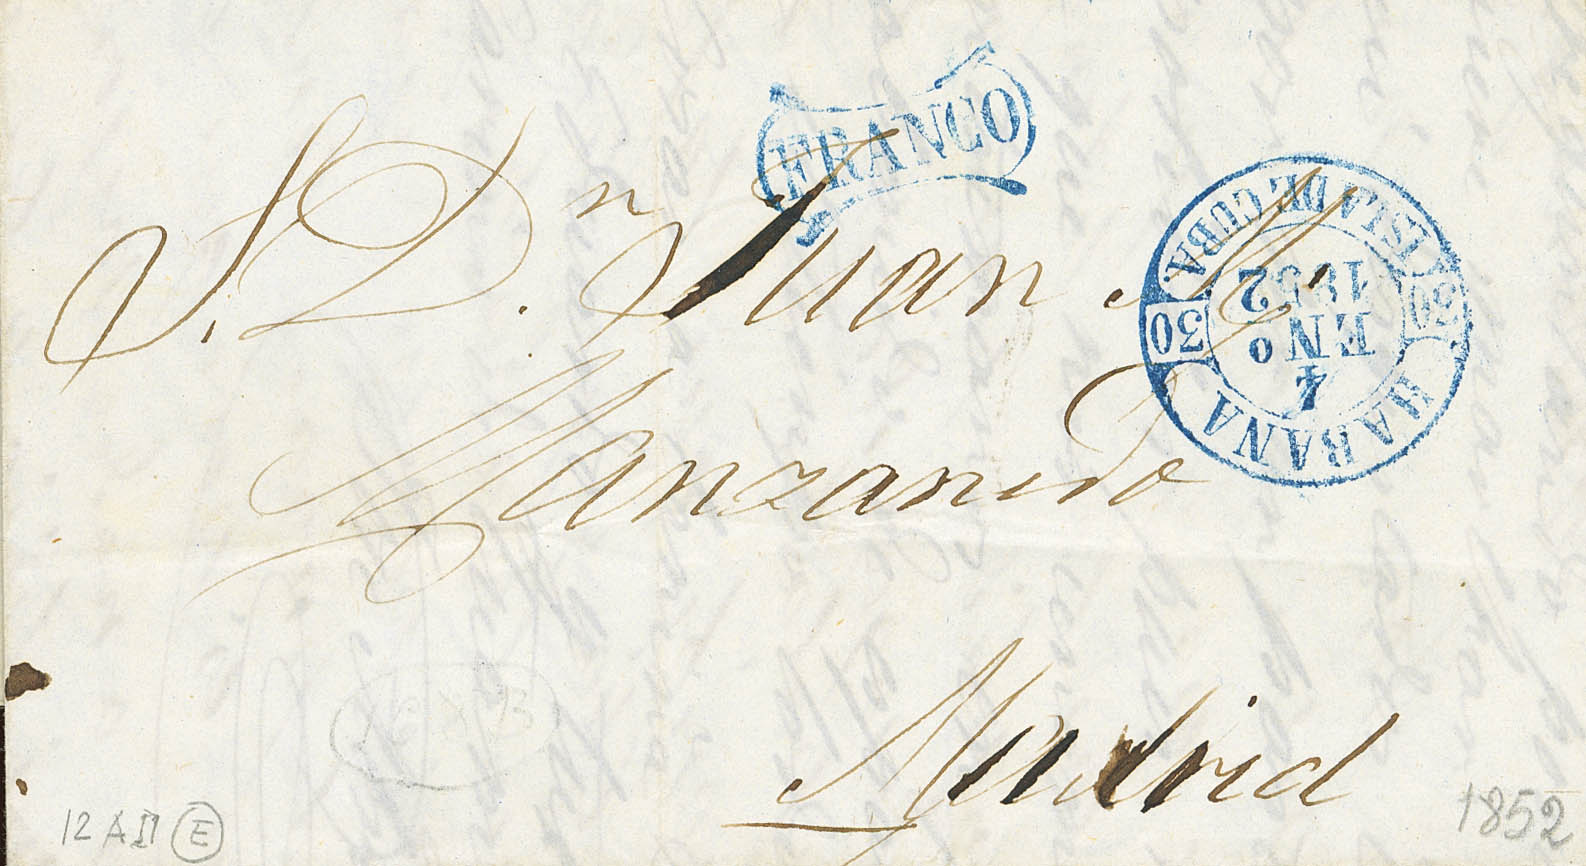 FRANCO
S. Dn. Juan M.
ISLA DE CUBA
1852
ENº
4
30 30
HABANA
Manzanedo
Madrid
12 A
E
1852